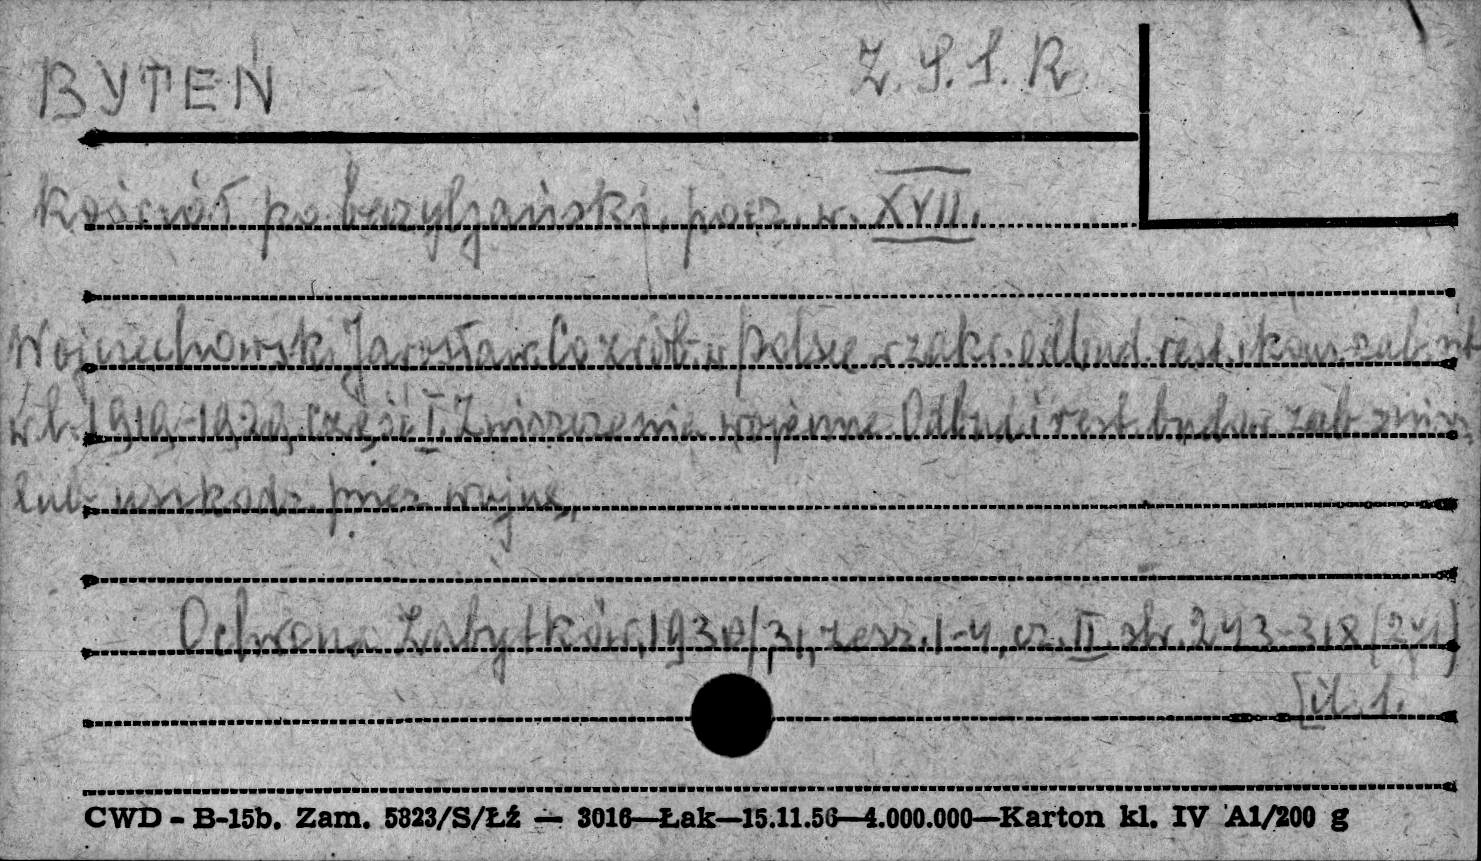 BYTEŃ Z. S. S. R.
Kościół po bazyljański, pocz. w. XVII.
Wojciechowski Jarosław. Co zrób. w Polsce w zakr. odbud. rest. i kons. zab. szt.
w l. 1919-1929. Część I. Zniszczenia wojenne. Odbud. i rest. budow. zab. znisz.
lub uszkodz. przez wojnę,
Ochrona Zabytków, 1930/31, zesz. 1-4, cz. II str. 243-318 (271)
[il. 1.
CWD - B-15b. Zam. 5823/S/Łź — 3016—Łak—15.11.56—4.000.000—Karton kl. IV A1/200 g